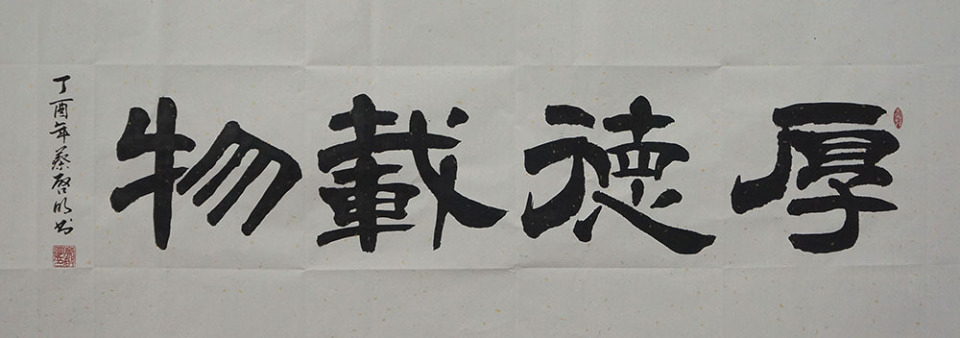 厚德載物
丁酉年蔡啓明书